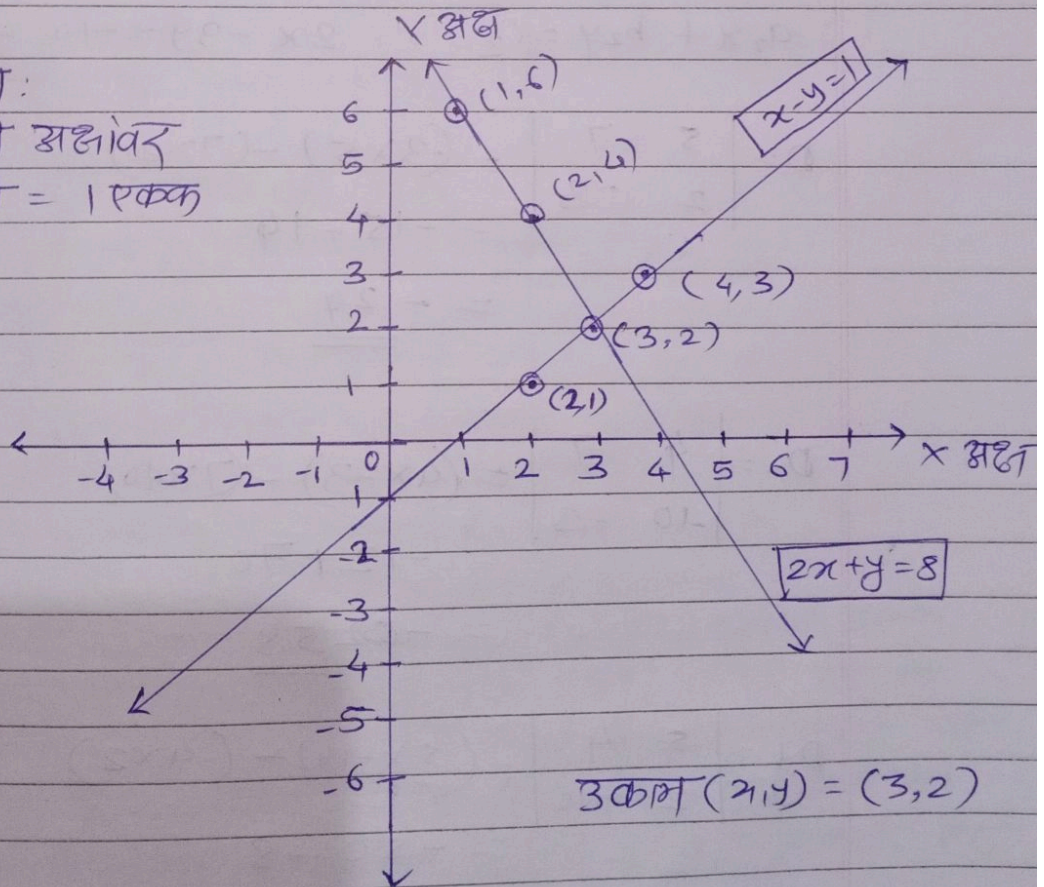 Y अक्ष
:
अक्षांवर
= 1 एकक
(1,6)
x-y=1
(2,4)
(4,3)
(3,2)
(2,1)
6
5
4
3
2
1
-4 -3 -2 -1 0 1 2 3 4 5 6 7 X अक्ष
1
-2
-3
-4
-5
-6
2x+y=8
उकल (x,y) = (3,2)